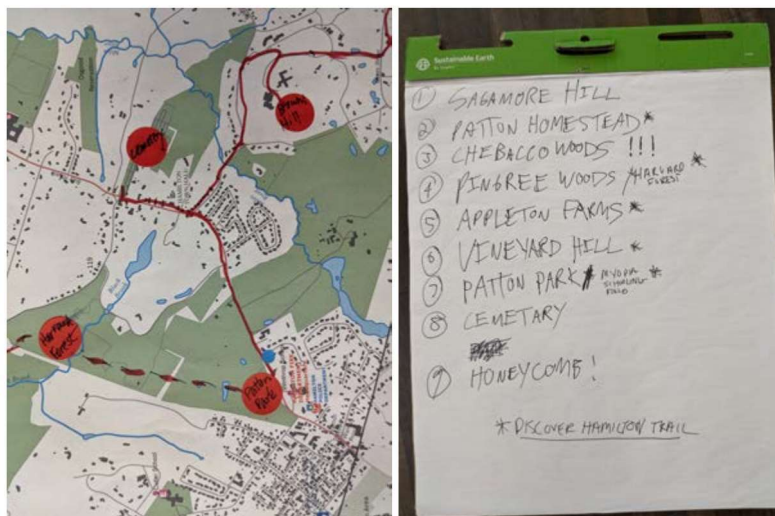 Cemetery
Hill
HAMILTON
TOWN HALL
Black
Brook
Harvard
Forest
Patton
Park
Sustainable Earth
① SAGAMORE HILL
② PATTON HOMESTEAD *
③ CHEBACCO WOODS !!!
④ PINGREE WOODS / HARVARD FOREST *
⑤ APPLETON FARMS *
⑥ VINEYARD HILL *
⑦ PATTON PARK / MYOPIA SCHOOLING FIELD *
⑧ CEMETARY
⑨ HONEYCOMB !
* DISCOVER HAMILTON TRAIL